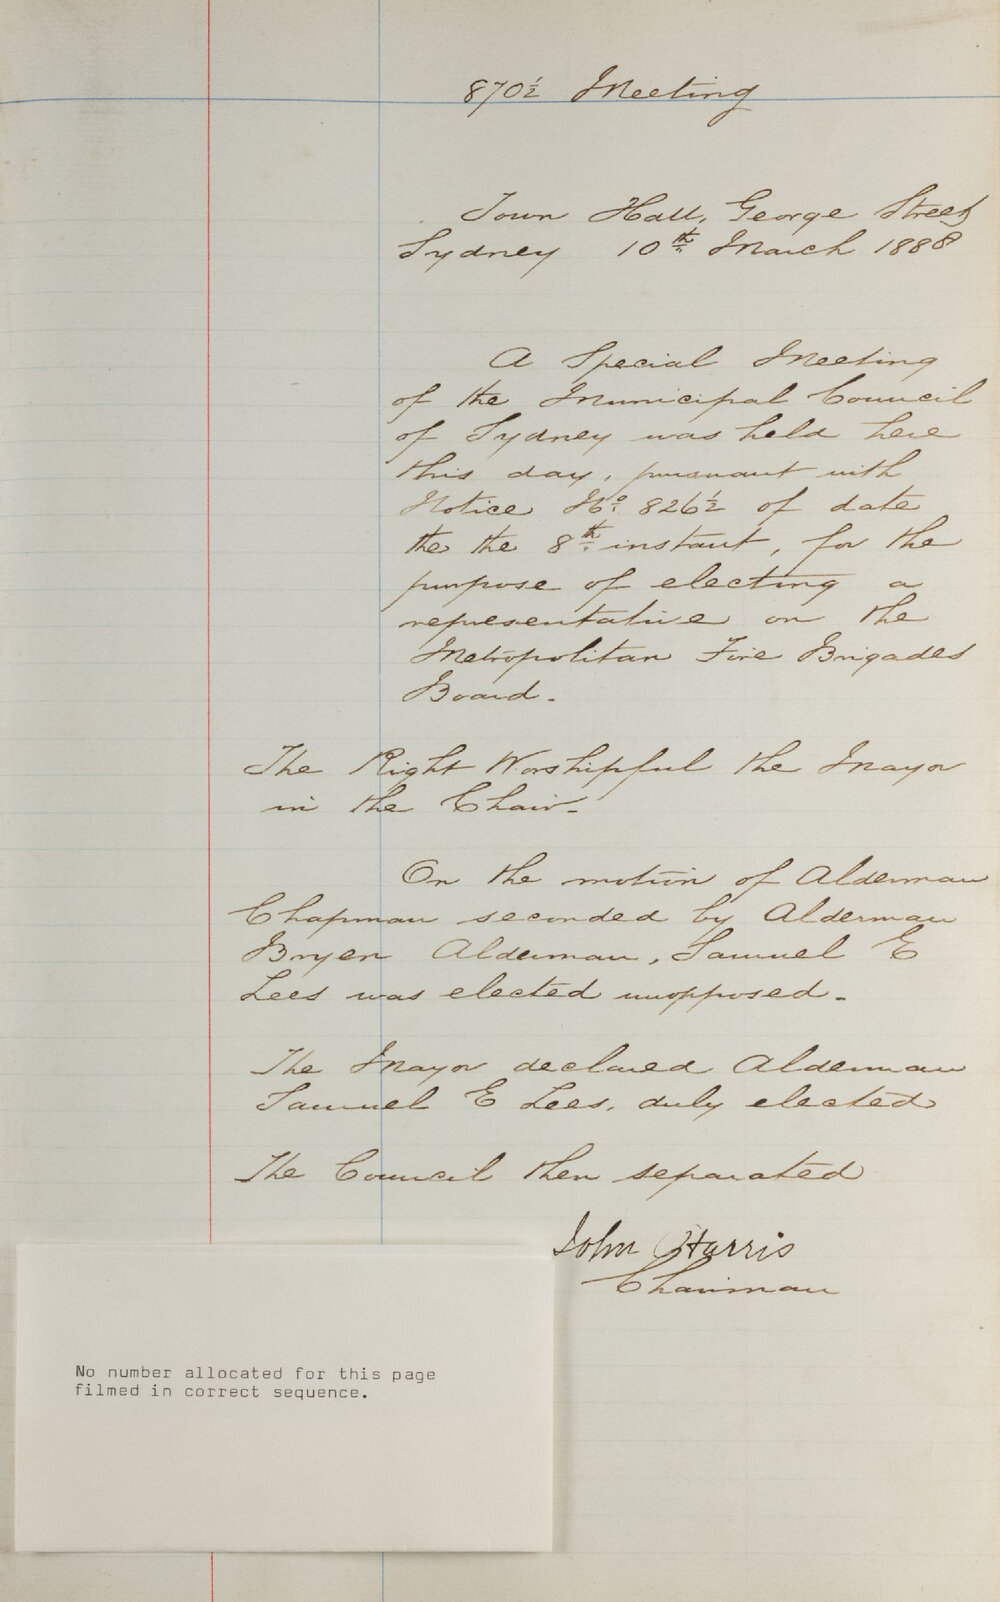 870½ Meeting
Town Hall, George Street
Sydney 10th March 1888
A Special Meeting
of the Municipal Council
of Sydney was held here
this day, pursuant with
Notice No. 826½ of date
the the 8th instant, for the
purpose of electing a
representative on the
Metropolitan Fire Brigades
Board.
The Right Worshipful the Mayor
in the Chair.
On the motion of Alderman
Chapman seconded by Alderman
Bryen Alderman, Samuel E
Lees was elected unopposed.
The Mayor declared Alderman
Samuel E Lees, duly elected
The Council then separated
John Harris
Chairman
No number allocated for this page
filmed in correct sequence.